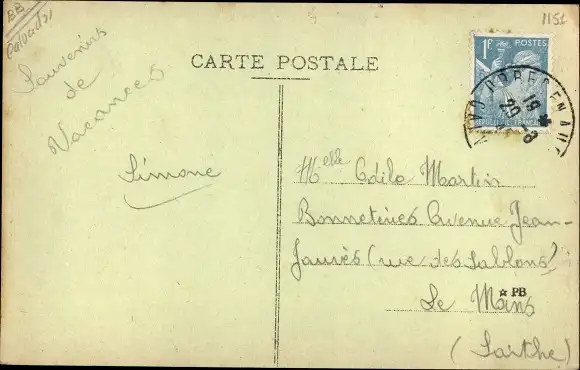 BB
Calvados
1151
CARTE POSTALE
Souvenirs
de
Vacances
Simone
1F POSTES
REPUBLIQUE FRANCAISE
19
20 -8
Melle Odile Martin
Bonneteries Avenue Jean-
Jaurès (rue des Sablons)
Le Mans
☆ PB
(Sarthe)